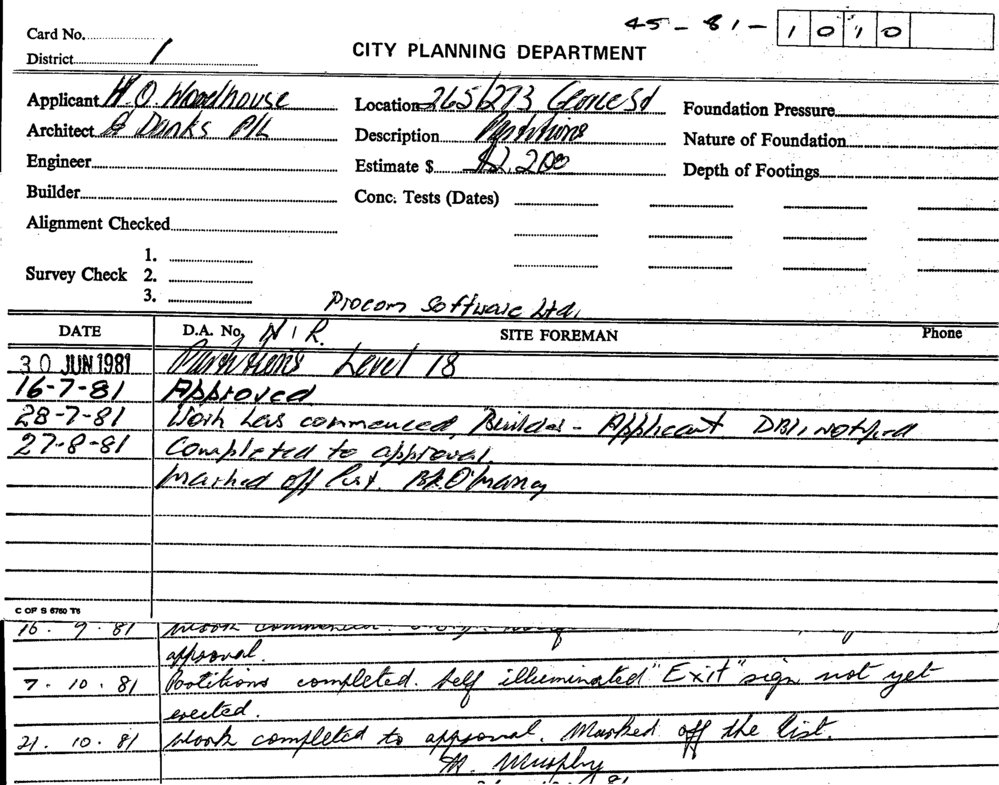 45 - 81 - 1010
Card No.
District 1
CITY PLANNING DEPARTMENT
Applicant H.O. Woodhouse
Location 265/273 George St
Foundation Pressure
Architect G Danks P/L
Description Partitions
Nature of Foundation
Engineer
Estimate $ $2,200
Depth of Footings
Builder
Conc. Tests (Dates)
Alignment Checked
1.
Survey Check 2.
3.
Procom Software Ltd.
DATE D.A. No. N I R. SITE FOREMAN Phone
30 JUN 1981 Partitions Level 18
16-7-81 Approved
28-7-81 Work has commenced, Builder - Applicant DBI, notified
27-8-81 Completed to approval.
Marked off List.
C OF S 6760 T6
16 . 9 . 81 Work commenced.
approval.
7 . 10 . 81 Partitions completed. Self illuminated "Exit" sign not yet
erected.
21 . 10 . 81 Work completed to approval. Marked off the list.
M. Murphy